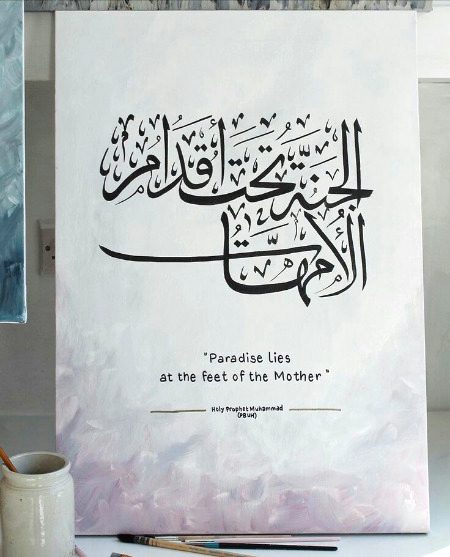 الجنة تحت أقدام
الأمهات
"Paradise lies
at the feet of the Mother"
Holy Prophet Muhammad
(PBUH)